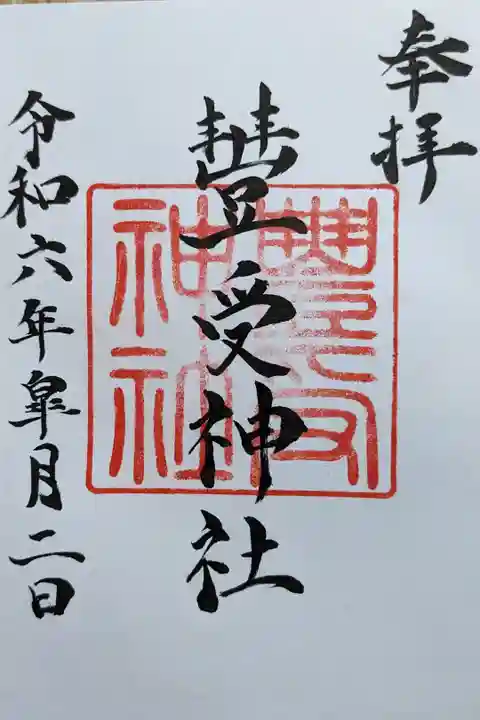 奉拝
豐受神社
豐受神社
令和六年皐月二日